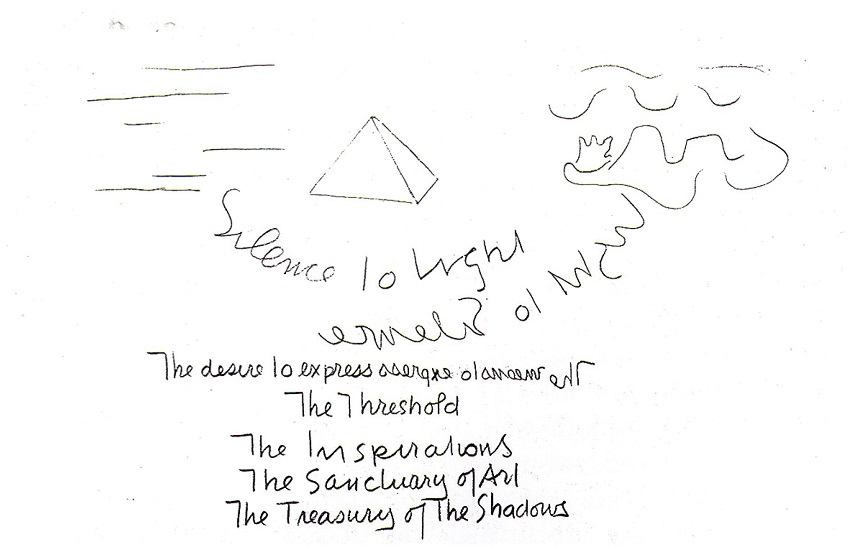 Silence to Light
Light to Silence
The desire to express The means to express
The Threshold
The Inspirations
The Sanctuary of Art
The Treasury of The Shadows